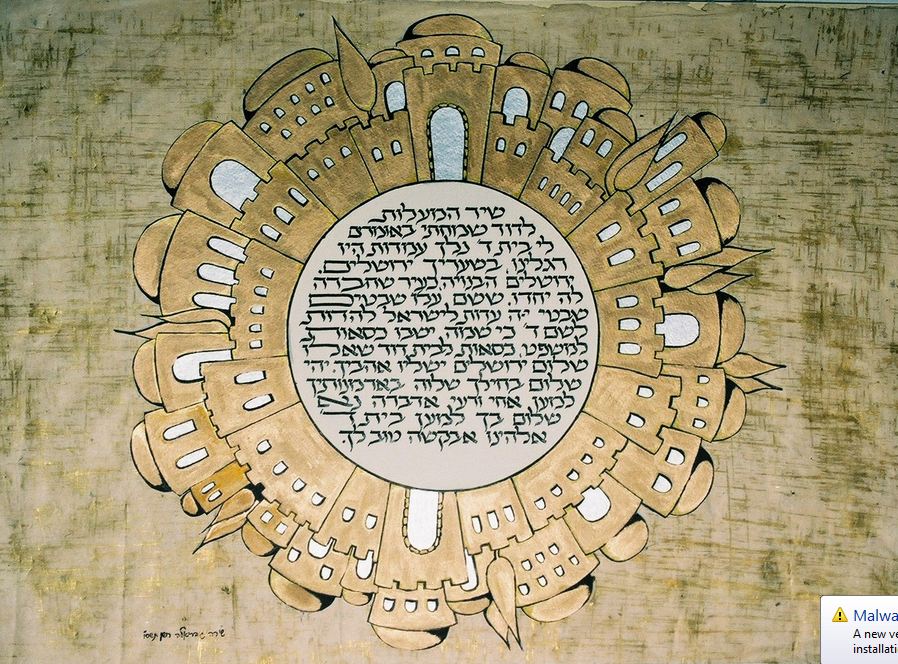 שיר המעלות
לדוד שמחתי באומרם
לי בית ד' נלך עמדות היו
רגלינו בשעריך ירושלים:
ירושלים הבנויה כעיר שחברה
לה יחדו. ששם עלו שבטים
שבטי י-ה עדות לישראל להדות
לשם ד' כי שמה ישבו כסאות
למשפט, כסאות לבית דוד שאלו
שלום ירושלים ישליו אהביך. יהי
שלום בחילך שלוה בארמנותיך
למען אחי ורעי אדברה נא
שלום בך למען בית ד'
אלהינו אבקשה טוב לך.
שירה
Malwa
A new ve
installati